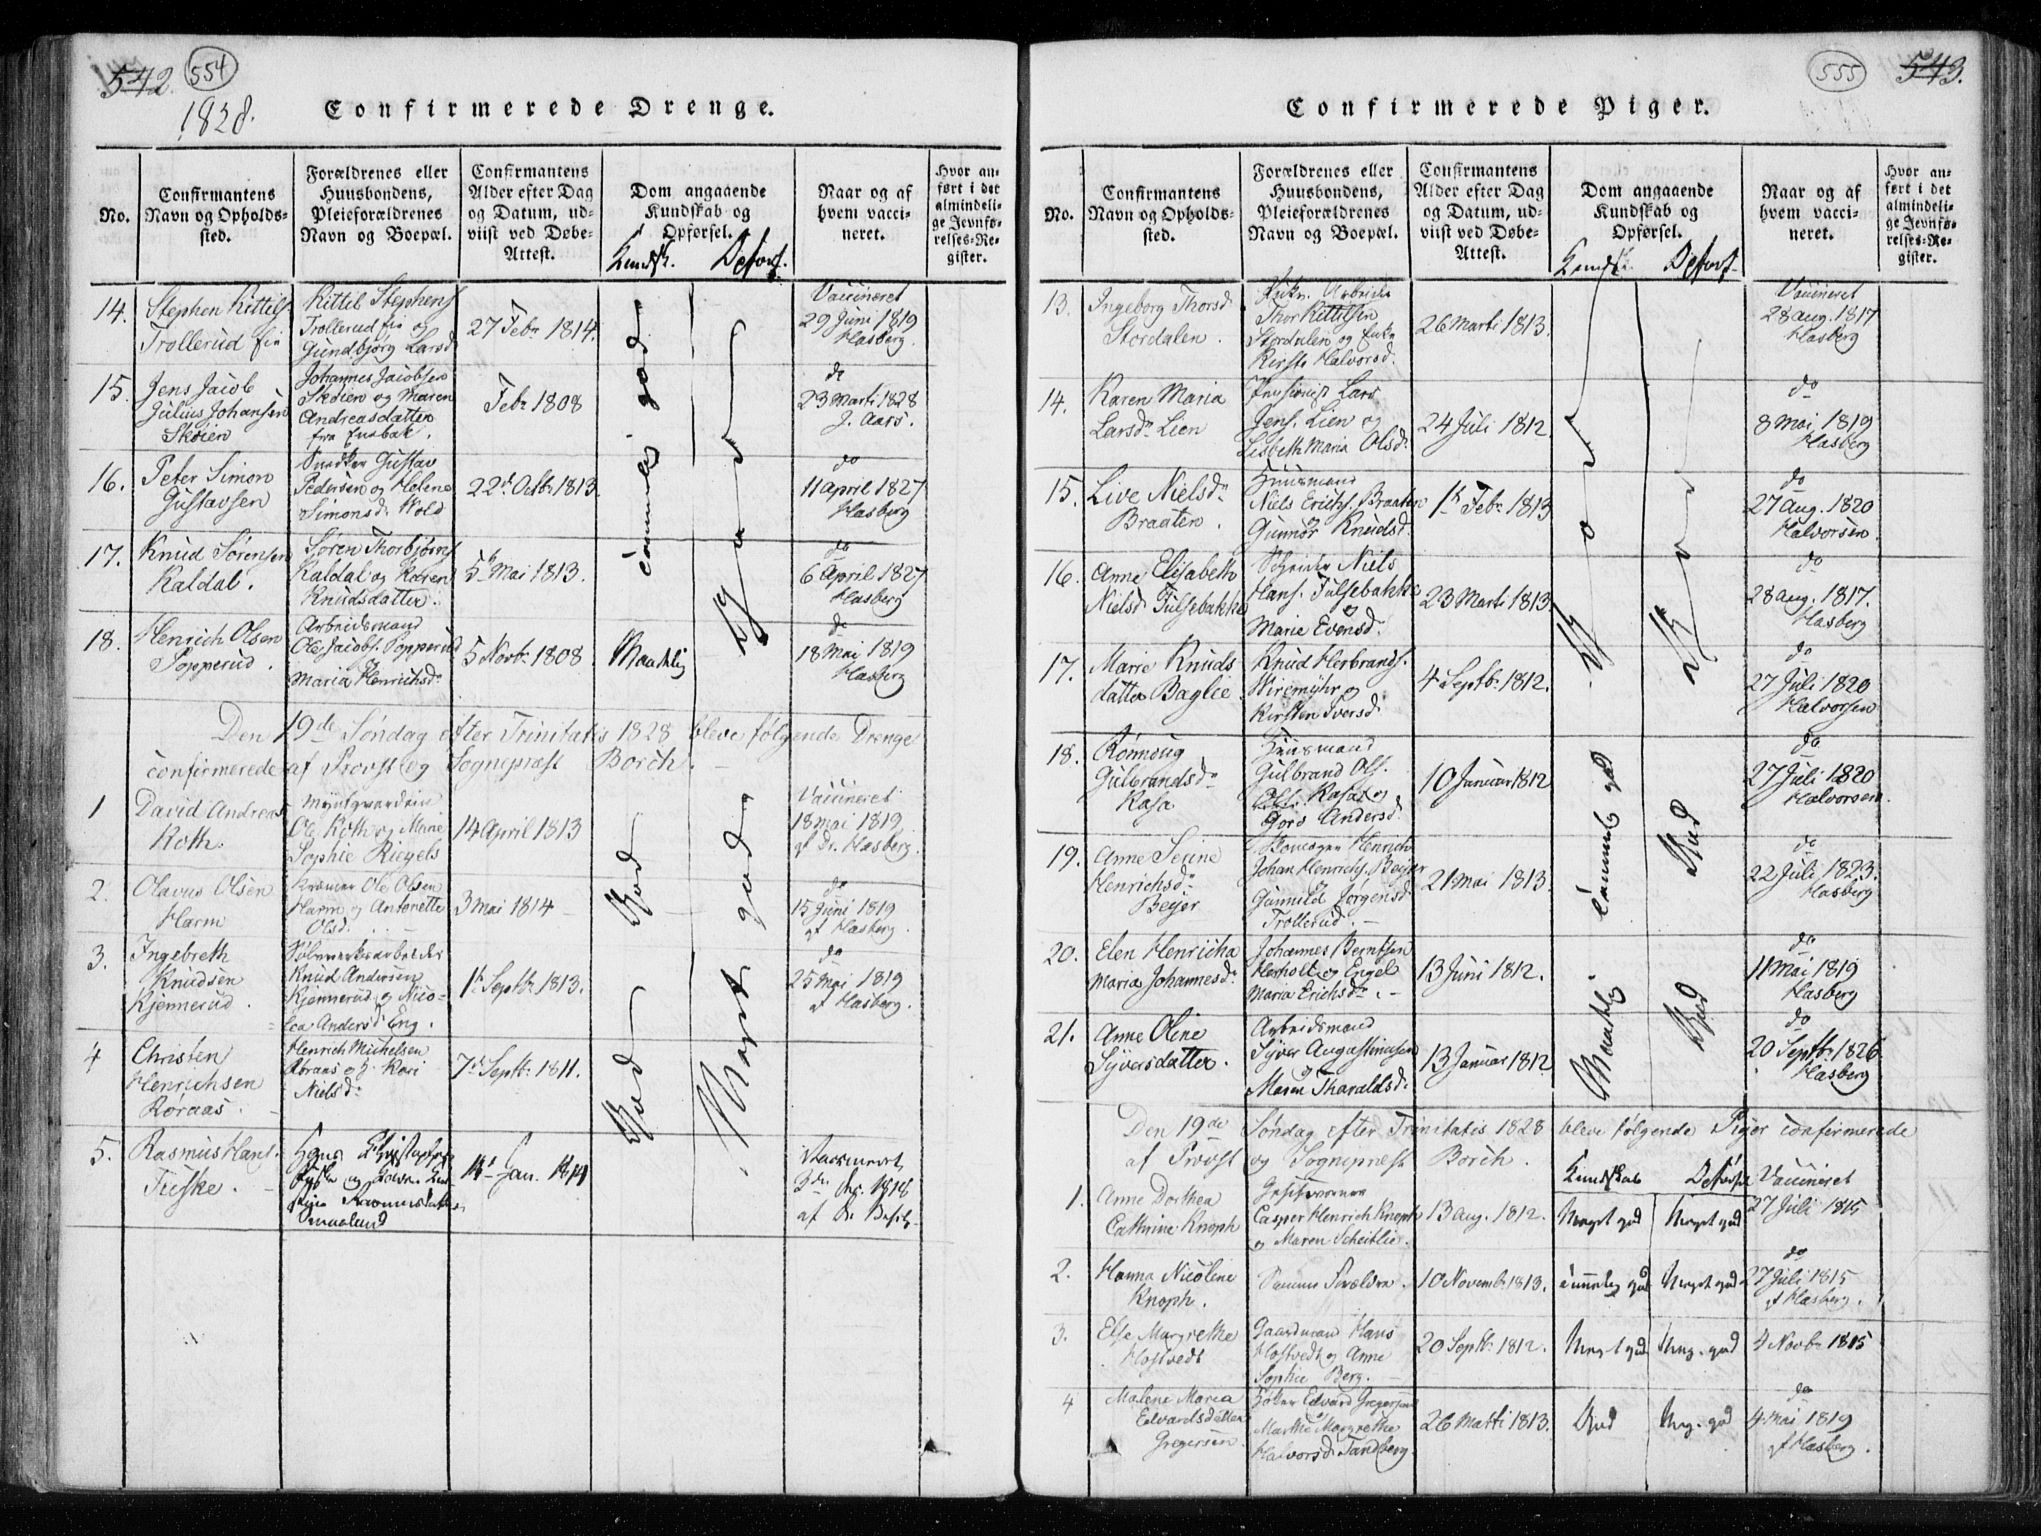 542 554
1828.
Confirmerede Drenge.
No.
Confirmantens
Navn og Opholds-
sted.
Forældrenes eller
Huusbondens,
Pleieforældrenes
Navn og Boepæl.
Confirmantens
Alder efter Dag
og Datum, ud-
viist ved Døbe-
Attest.
Dom angaaende
Kundskab og
Opførsel.
Kundsk.
Naar og af
hvem vacci-
neret.
Hvor an-
ført i det
almindeli-
ge Jevnfø-
relses-Re-
gister.
14. Stephen Kittils.
Trollerud fie
Kittil Stephens.
Trollerud fie og
Gundbjørg Larsd.
27 Febr. 1814.
Vaccineret
29 Juni 1819
Hasberg.
15. Jens Jacob
Julius Johansen
Skoien
Johannes Jacobsen
Skoien og Maren
Andreasdatter
Febr. 1808
do
23 Marti 1828
J. Aars.
16. Peter Simon
Gustavsen
Snedker Gustav
Pedersen og Helene
Simonsd. Wold
22d. Octbr. 1813.
do
11 April 1827
Hasberg
17. Knud Sørensen
Kaldal.
Søren Thorbjørns.
Kaldal og Karen
Knudsdatter.
5te Mai 1813.
do
6 April 1827
Hasberg
18. Henrich Olsen
Popperud.
Arbeidsmand
Ole Jacobs. Popperud
og
Maria Henrichsd.
5 Novbr. 1808.
Maadelig
do
18 Mai 1819
Hasberg
Den 19de Søndag efter Trinitatis 1828 bleve følgende Drenge
confirmerede af Provst og Sognepræst Borch.
1 David Andreas
Roth.
Myntgvardein
Ole Roth og Marie
Sophie Riegels
14 April 1813
Vaccineret
18 Mai 1819
af Dr. Hasberg.
2. Olavus Olsen
Harm
Kræmer Ole Olsen
Harm og Antonette
Olsd.
3 Mai 1814
do
15 Juni 1819
af Hasberg.
3. Ingebreth
Knudsen
Kjennerud.
Sølvverksarbeider
Knud Andersen
Kjennerud og Nico-
lea Andersd. Eng.
1te Septbr. 1813.
do
25 Mai 1819
af Hasberg.
4 Christen
Henrichsen
Røraas.
Henrich Michelsen
Røraas og Kari
Nielsd.
7de Septbr. 1811.
5. Rasmus Hans.
Tuske.
Hans Christophers.
14de Jan. 1814
Vaccineret
3die Aug. 1818
af Dr.
God
God
Meget god
555 543.
Confirmerede Piger.
No.
Confirmantens
Navn og Opholds-
sted.
Forældrenes eller
Huusbondens,
Pleieforældrenes
Navn og Boepæl.
Confirmantens
Alder efter Dag
og Datum, ud-
viist ved Døbe-
Attest.
Dom angaaende
Kundskab og
Opførsel.
Kundsk.
Naar og af
hvem vacci-
neret.
Hvor an-
ført i det
almindeli-
ge Jevnfø-
relses-Re-
gister.
13. Ingeborg Thorsd.
Stordalen.
Thor Kittilsen
Stordalen og Enke
Kirsti Halvorsd.
26 Marti 1813.
Vaccineret
28 Aug. 1817
Hasberg
14. Karen Maria
Larsdr. Lien
Pensionist Lars
Jens. Lien og
Lisbeth Maria Olsd.
24 Juli 1812.
do
8 Mai 1819
Hasberg
15. Live Nielsdr.
Braaten.
Huusmand
Niels Erichs. Braaten
og
Gunnor Knudsd.
1te Febr. 1813
do
27 Aug. 1820
Halvorsen.
16. Anne Elisabeth
Nielsd. Tulsebakke
Niels
Hans. Tulsebakke
og
Marie Evensd.
23 Marti 1813
do
28 Aug. 1817.
Hasberg
17. Marie Knuds
datter Baglie
Knud Herbrands.
Wiremyhr og
Kirsten Iversd.
4 Septbr. 1812.
do
27 Juli 1820
Halvorsen
18. Rønnoug
Gulbrandsdr.
Rasa
Huusmand
Gulbrand Ols.
Rasa og
Goro Andersd.
10 Januar 1812
do
27 Juli 1820
Halvorsen.
19. Anne Serine
Henrichsdr.
Beijer
Skomager Henrich
Johan Henrichs. Beijer
og
Gunnild Jørgensd.
Trollerud.
21 Mai 1813.
do
22 Juli 1823.
Hasberg
20. Elen Henricha
Maria Johannesdr.
Johannes Berntsen
Herholt og Engel
Maria Erichsdr.
13 Juni 1812.
do
11 Mai 1819
Hasberg
21. Anne Oline
Syversdatter.
Arbeidsmand
Syver Augustinusen
og
Maren Tharaldsdr.
13 Januar 1812
do
20 Septbr. 1826.
Hasberg
God
God
Maadelig
Den 19de Søndag efter Trinitatis 1828 bleve følgende Piger confirmerede
af Provst og Sognepræst Borch.
Kundskab Vaccineret
1. Anne Dorthea
Cathrine Knoph
Casper Henrich Knoph
og Maren Scheitlie.
13 Aug. 1812.
Meget god Meget god
27 Juli 1815
2. Hanna Nicoline
Knoph.
Samme Forældre.
10 Novemb. 1813.
temmelig god Meget god
do
27 Juli 1815
af Hasberg.
3. Else Margrethe
Hostvedt
Gaardman Hans
Hostvedt og Anne
Sophie Berg.
20 Septbr. 1812.
Meget god Meg. god
4 Novbr. 1815
4 Malene Maria
Edvardsdatter
Gregersen.
Edvard Gregersen
og
Marthe Margrethe
Halvorsd. Tandberg.
26 Marti 1813.
God Meg. god
do
4 Mai 1819
af Hasberg.